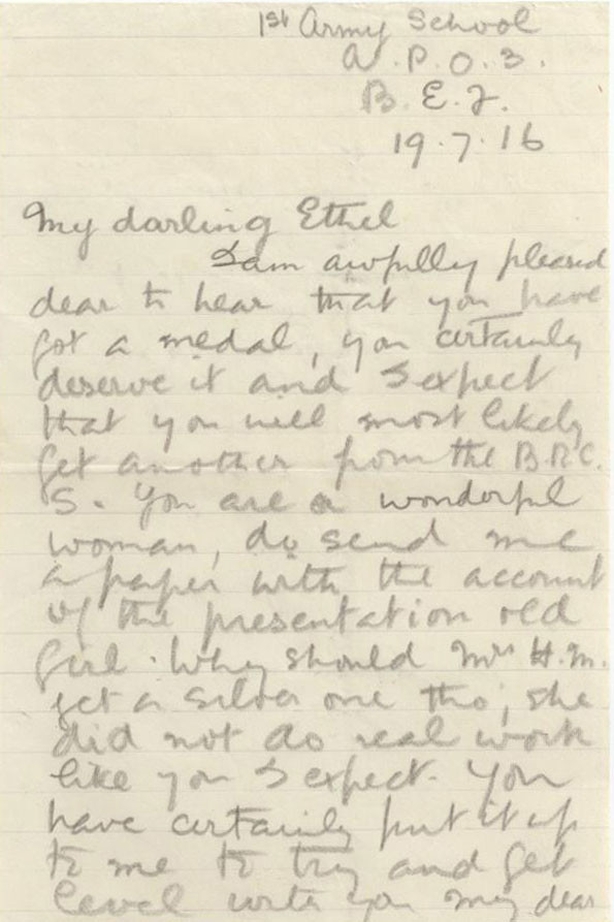 1st Army School
A.P.O.3.
B.E.F.
19.7.16
My darling Ethel
I am awfully pleased
dear to hear that you have
got a medal, you certainly
deserve it and I expect
that you will most likely
get another from the B.R.C.
S. You are a wonderful
woman, do send me
a paper with the account
of the presentation old
girl. Why should Mrs H.M.
get a silver one tho, she
did not do real work
like you I expect. You
have certainly put it up
to me to try and get
level with you my dear